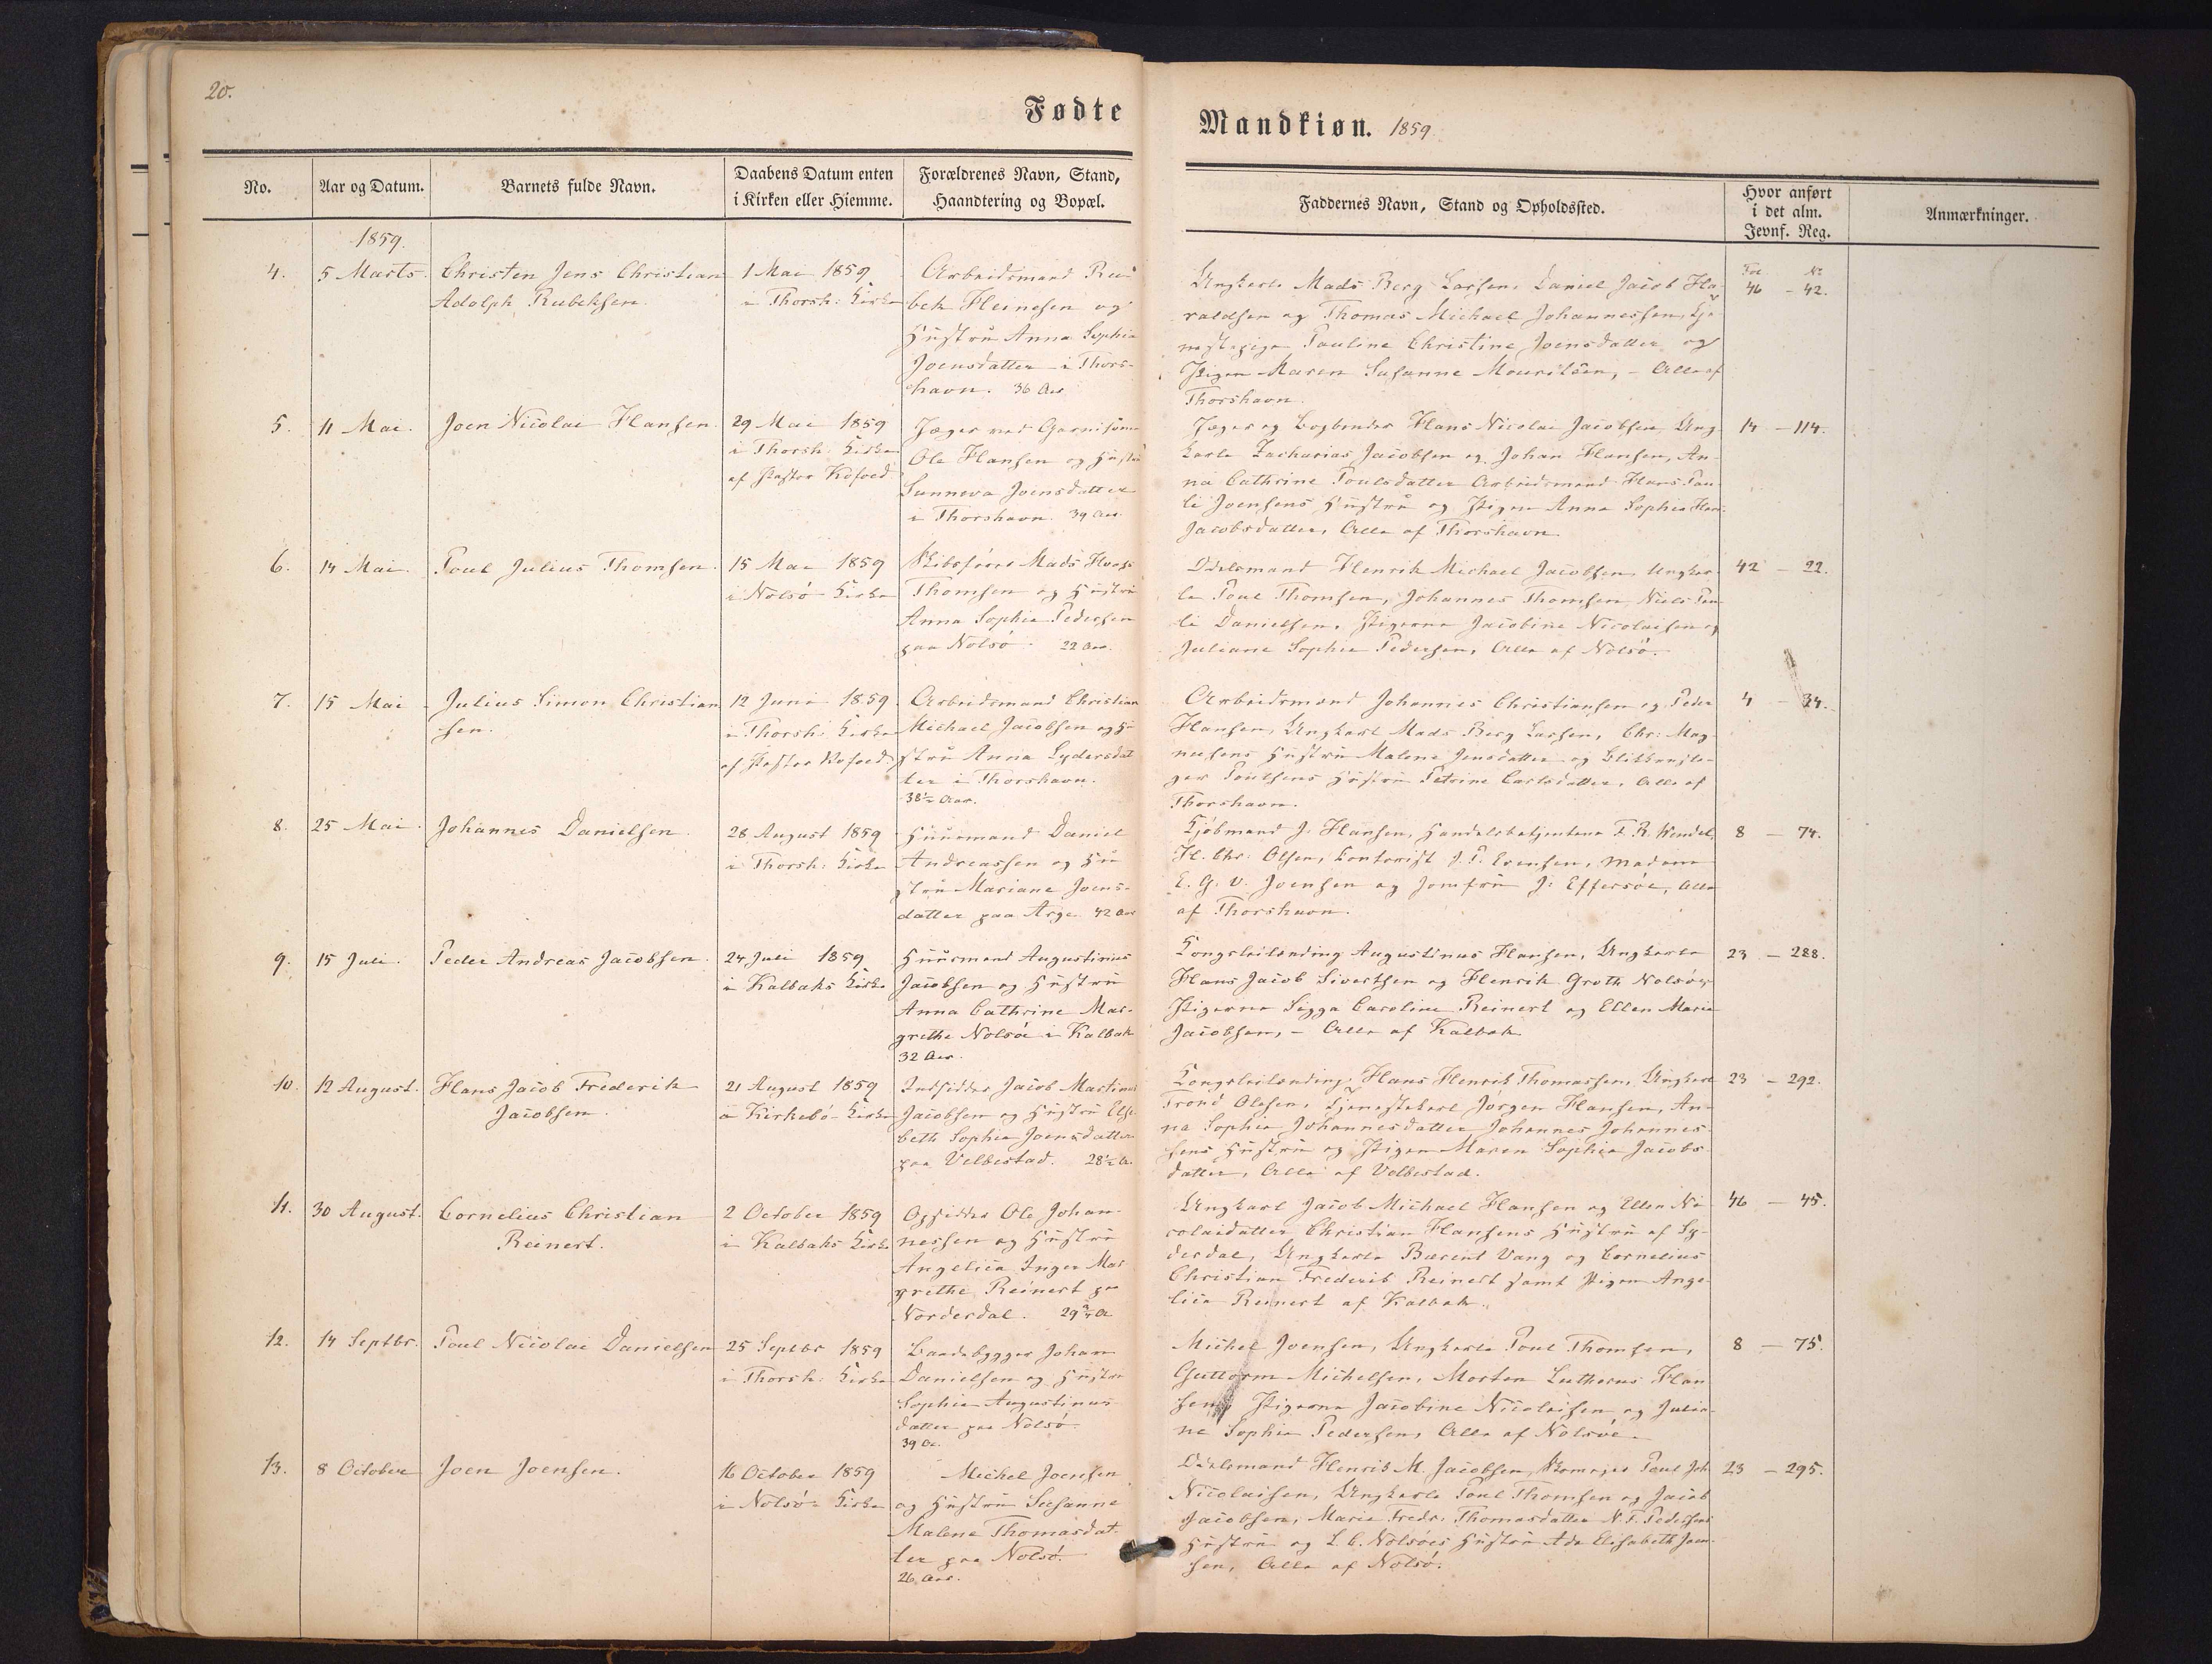 20.
Fødte
Mandkiøn. 1859
No.
Aar og Datum.
Barnets fulde Navn.
Daabens Datum enten
i Kirken eller Hiemme.
Forældrenes Navn, Stand,
Haandtering og Bopæl.
Faddernes Navn, Stand og Opholdssted.
Hvor anført
i det alm.
Jevnf. Reg.
Anmærkninger.
1859.
4.
5 Marts.
Christen Jens Christian
Adolph Rubeksen.
1 Mai 1859
i Thorsh: Kirke
Arbeidsmand Ru-
bek Heinesen og
Hustru Anna Sophie
Joensdatter i Thors-
havn. 36 Aar
Ungkarle Mads Berg Larsen, Daniel Jacob Ha-
raldsen og Thomas Michael Johannessen, Tje-
nestepige Pauline Christine Joensdatter og
Pigen Maren Susanne Mouritsen, - Alle af
Thorshavn.
Fol. No
46 - 42.
5.
11 Mai.
Joen Nicolai Hansen.
29 Mai 1859
i Thorsh Kirke
af Pastor Kofoed
Jæger ved Garnisonen
Ole Hansen og Hustru
Sunneva Joensdatter
i Thorshavn. 39 Aar.
Jæger og Bogbinder Hans Nicolai Jacobsen, Ung-
karle Zacharias Jacobsen og Johan Hansen, An-
na Cathrine Poulsdatter Arbeidsmand Hans Pau-
li Joensens Hustru og Pigen Anna Sophie Han:
Jacobsdatter, Alle af Thorshavn.
14 - 114.
6.
14 Mai.
Poul Julius Thomsen.
15 Mai 1859
i Nolsø Kirke
Skibsfører Mads
Thomsen og Hustru
Anna Sophie Pedersen
paa Nolsø. 22 Aar.
Odelsmand Henrik Michael Jacobsen, Ungkar-
le Poul Thomsen, Johannes Thomsen, Niels Pau-
li Danielsen, Pigerne Jacobine Nicolaisen og
Juliane Sophie Pedersen, Alle af Nolsø.
42 - 22.
7.
15 Mai
Julius Simon Christian
sen.
12 Juni 1859
i Thorsh: Kirke
af Pastor Kofoed
Arbeidsmand Christian
Michael Jacobsen og Hu-
stru Anna Lydersdat
ter i Thorshavn.
38½ Aar.
Arbeidsmænd Johannes Christiansen og Peder
Hansen, Ungkarl Mads Berg Larsen, Chr: Mag-
nusens Hustru Malene Jensdatter og
ger Poulsens Hustru Petrine Carlsdatter, Alle af
Thorshavn.
4 - 34.
8.
25 Mai.
Johannes Danielsen.
28 August 1859
i Thorsh: Kirke
Huusmand Daniel
Andreassen og Hu-
stru Mariane Joens-
datter paa Arge 42 Aar
Kjøbmand J. Hansen, Handelsbetjentene F. R. Wendel,
H. Chr: Olsen, Contorist J. P. Evensen, Madame
E. G. V. Joensen og Jomfru J: Effersøe, Alle
af Thorshavn.
8 - 74.
9.
15 Juli.
Peder Andreas Jacobsen.
24 Juli 1859
i Kalbaks Kirke
Huusmand Augustinus
Jacobsen og Hustru
Anna Cathrine Mar-
grethe Nolsøe i Kalbak
32 Aar.
Kongsleilænding Augustinus Hansen, Ungkarle
Hans Jacob Sivertsen og Henrik Groth Nolsøe,
Pigerne Sigga Caroline Reinert og Ellen Marie
Jacobsen, - Alle af Kalbak
23 - 288.
10.
12 August.
Hans Jacob Frederik
Jacobsen.
21 August 1859
i Kirkebø Kirke
Indsidder Jacob Martinus
Jacobsen og Hustru Else-
beth Sophie Joensdatter
paa Velbestad. 28½ A.
Kongsleilænding Hans Henrik Thomassen, Ungkarl
Trond Olesen, Tjenestekarl Jørgen Hansen, An-
na Sophie Johannesdatter Johannes Johannes-
sens Hustru og Pigen Maren Sophie Jacobs-
datter, Alle af Velbestad.
23 - 292.
11.
30 August.
Cornelius Christian
Reinert.
2 October 1859
i Kalbaks Kirke
Opsidder Ole Johan-
nessen og Hustru
Angelica Inger Mar
grethe Reinert paa
Norderdal. 29¾ A
Ungkarl Jacob Michael Hansen og Ellen Ni-
colaidatter Christian Hansens Hustru af Sy-
derdal, Ungkarle Bærent Vang og Cornelius
Christian Frederik Reinert samt Pigen Ange-
lica Reinert af Kalbak.
46 - 45.
12.
14 Septbr.
Poul Nicolai Danielsen
25 Septbr 1859
i Thorsh: Kirke
Baadebygger Johan
Danielsen og Hustru
Sophie Augustinus
datter paa Nolsø.
39 A.
Michel Joensen, Ungkarle Poul Thomsen,
Guttorm Michelsen, Morten Lutherus Han
sen, Pigerne Jacobine Nicolaisen og Julia-
ne Sophie Pedersen, Alle af Nolsøe.
8 - 75.
13.
8 October
Joen Joensen.
16 October 1859
i Nolsø Kirke
Michel Joensen
og Hustru Susanne
Malene Thomasdat-
ter paa Nolsø.
26 Aar.
Odelsmand Henrik M. Jacobsen, Skomager Poul Joh.
Nicolaisen, Ungkarle Poul Thomsen og Jacob
Jacobsen, Marie Fredr. Thomasdatter N. P. Pedersens
Hustru og L. C. Nolsøes Hustru Ada Elisabeth Joen-
sen, Alle af Nolsø.
23 - 295.